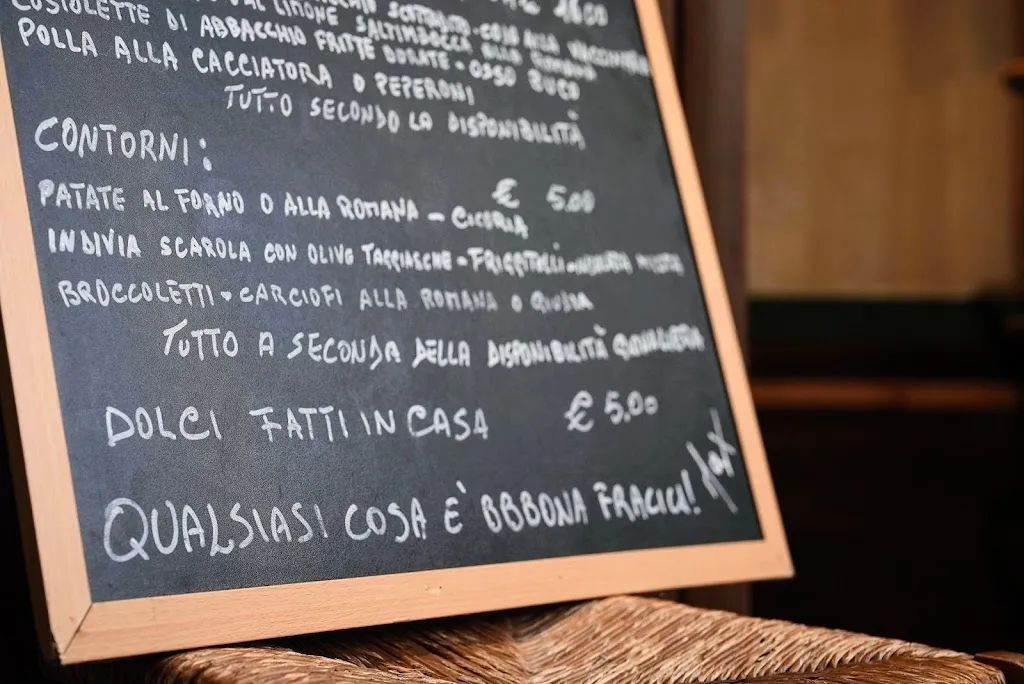 SCOTTADITO - CODA ALLA VACCINARA 16.00
COSTOLETTE DI ABBACCHIO FRITTE DORATE - OSSO BUCO
AL LIMONE SALTIMBOCCA ALLA ROMANA
POLLA ALLA CACCIATORA O PEPERONI
TUTTO SECONDO LA DISPONIBILITÀ
CONTORNI:
PATATE AL FORNO O ALLA ROMANA - CICORIA € 5.00
INDIVIA SCAROLA CON OLIVE TAGGIASCHE - FRIGGITELLI - INSALATA MISTA
BROCCOLETTI - CARCIOFI ALLA ROMANA O GIUDIA
TUTTO A SECONDA DELLA DISPONIBILITÀ
DOLCI FATTI IN CASA € 5,00
QUALSIASI COSA È BBBONA FRACICI!